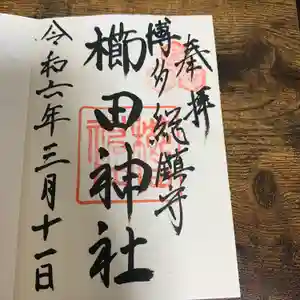 奉拝
博多総鎮守
櫛田神社
令和六年三月十一日